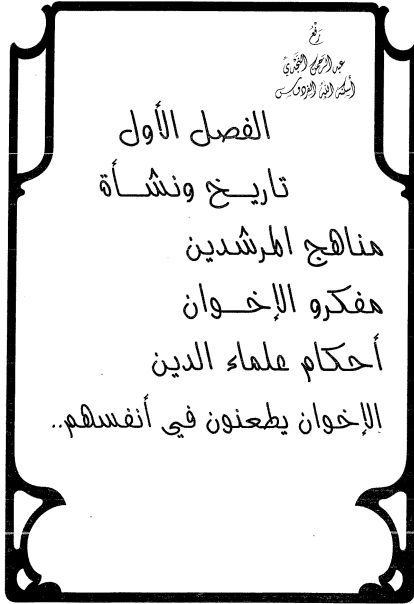 رفع
عبد الرحمن النجدي
أسكنه الله الفردوس
الفصل الأول
تاريخ ونشأة
مناهج المرشدين
مفكرو الإخوان
أحكام علماء الدين
الإخوان يطعنون في أنفسهم..